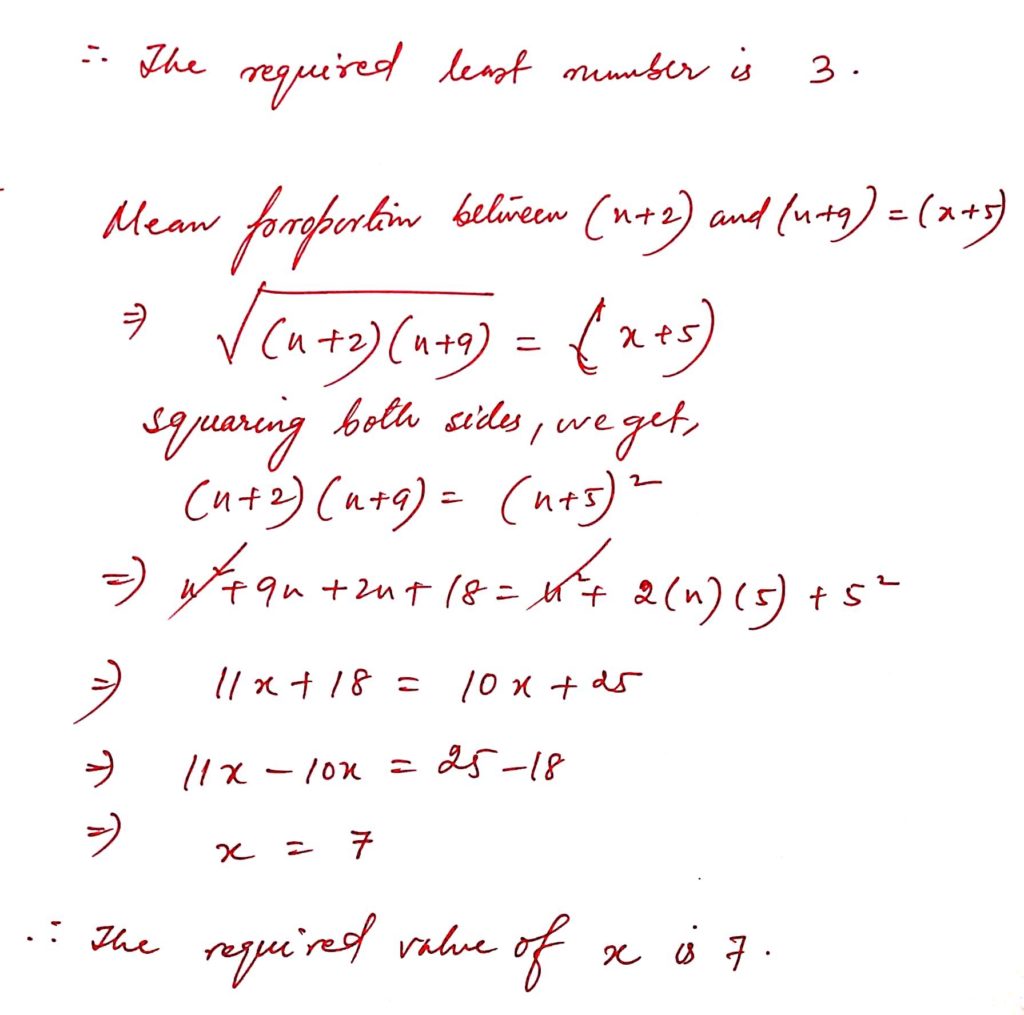 ∴ The required least number is 3.
Mean proportion between (x+2) and (x+9) = (x+5)
⇒ √(x+2)(x+9) = (x+5)
squaring both sides, we get,
(x+2)(x+9) = (x+5)²
⇒ x²+9x+2x+18 = x²+2(x)(5)+5²
⇒ 11x+18 = 10x+25
⇒ 11x-10x = 25-18
⇒ x = 7
∴ The required value of x is 7.